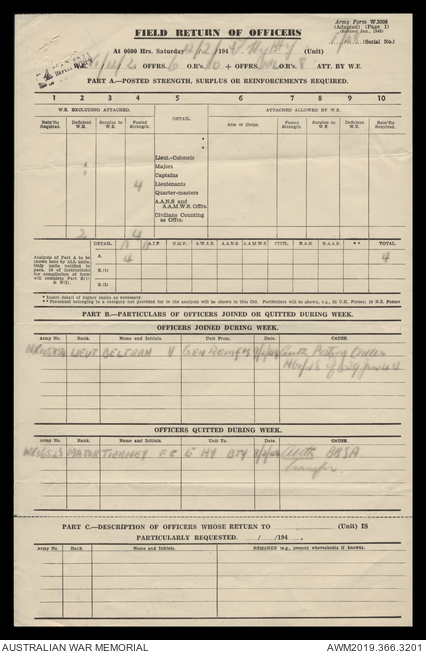 Army Form W.3008
(Adapted) (Page 1)
(Serial No.)
FIELD RETURN OF OFFICERS
At 0600 Hrs. Saturday 12/2/194 (Unit)
W.E. OFFRS. 6 O.R's. + OFFRS. O.R's. 8 ATT. BY W.E.
PART A.—POSTED STRENGTH, SURPLUS OR REINFORCEMENTS REQUIRED.
1 2 3 4 5 6 7 8 9 10
W.E. EXCLUDING ATTACHED. DETAIL. ATTACHED ALLOWED BY W.E.
Rein'fts Required. Deficient W.E. Surplus to W.E. Posted Strength. Arm or Corps. Posted Strength. Surplus to W.E. Deficient W.E. Rein'fts Required.
*
*
Lieut.-Colonels
Majors
Captains
4 Lieutenants
Quarter-masters
A.A.N.S and A.A.M.W.S. Offrs.
Civilians Counting as Offrs.
2 4
DETAIL. A.I.F. C.M.F. A.W.A.S. A.A.N.S. A.A.M.W.S. CIVIL. R.A.N. R.A.A.F. ** TOTAL.
Analysis of Part A to be shown here by ALL units. Only units notified in para. 19 of instructions for compilation of form will complete Part E(1) & E(2).
A. 4 4
E.(1)
E.(2)
* Insert detail of higher ranks as necessary.
** Personnel belonging to a category not provided for in the analysis will be shown in this Col. Particulars will be shown, e.g., 20 U.K. Forces; 10 N.Z. Forces
PART B.—PARTICULARS OF OFFICERS JOINED OR QUITTED DURING WEEK.
OFFICERS JOINED DURING WEEK.
Army No. Rank. Name and Initials. Unit From. Date. CAUSE.
LIEUT BELTRAN V GEN REINF'S Auth Posting Order
OFFICERS QUITTED DURING WEEK.
Army No. Rank. Name and Initials. Unit To. Date. CAUSE
MAJOR TIERNEY F C E HY BTY Auth BRSA
transfer
PART C.—DESCRIPTION OF OFFICERS WHOSE RETURN TO (Unit) IS
PARTICULARLY REQUESTED. / /194 .
Army No. Rank. Name and Initials. REMARKS (e.g., present whereabouts if known).
AUSTRALIAN WAR MEMORIAL AWM2019.366.3201